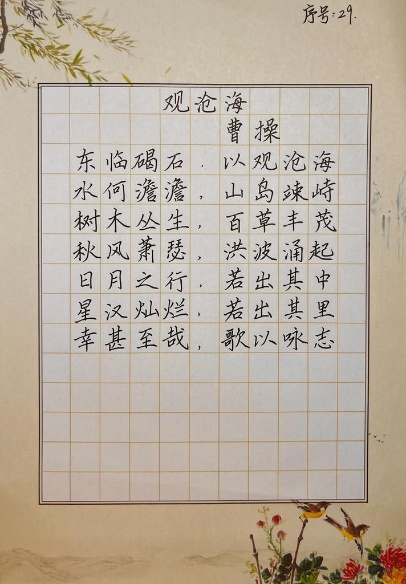 序号:29.
观沧海
曹操
东临碣石.以观沧海
水何澹澹,山岛竦峙
树木丛生,百草丰茂
秋风萧瑟,洪波涌起
日月之行,若出其中
星汉灿烂,若出其里
幸甚至哉,歌以咏志